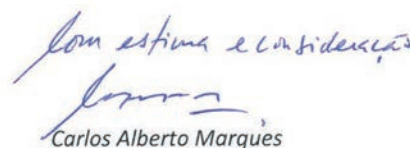 Com estima e consideração
Carlos Alberto Marques